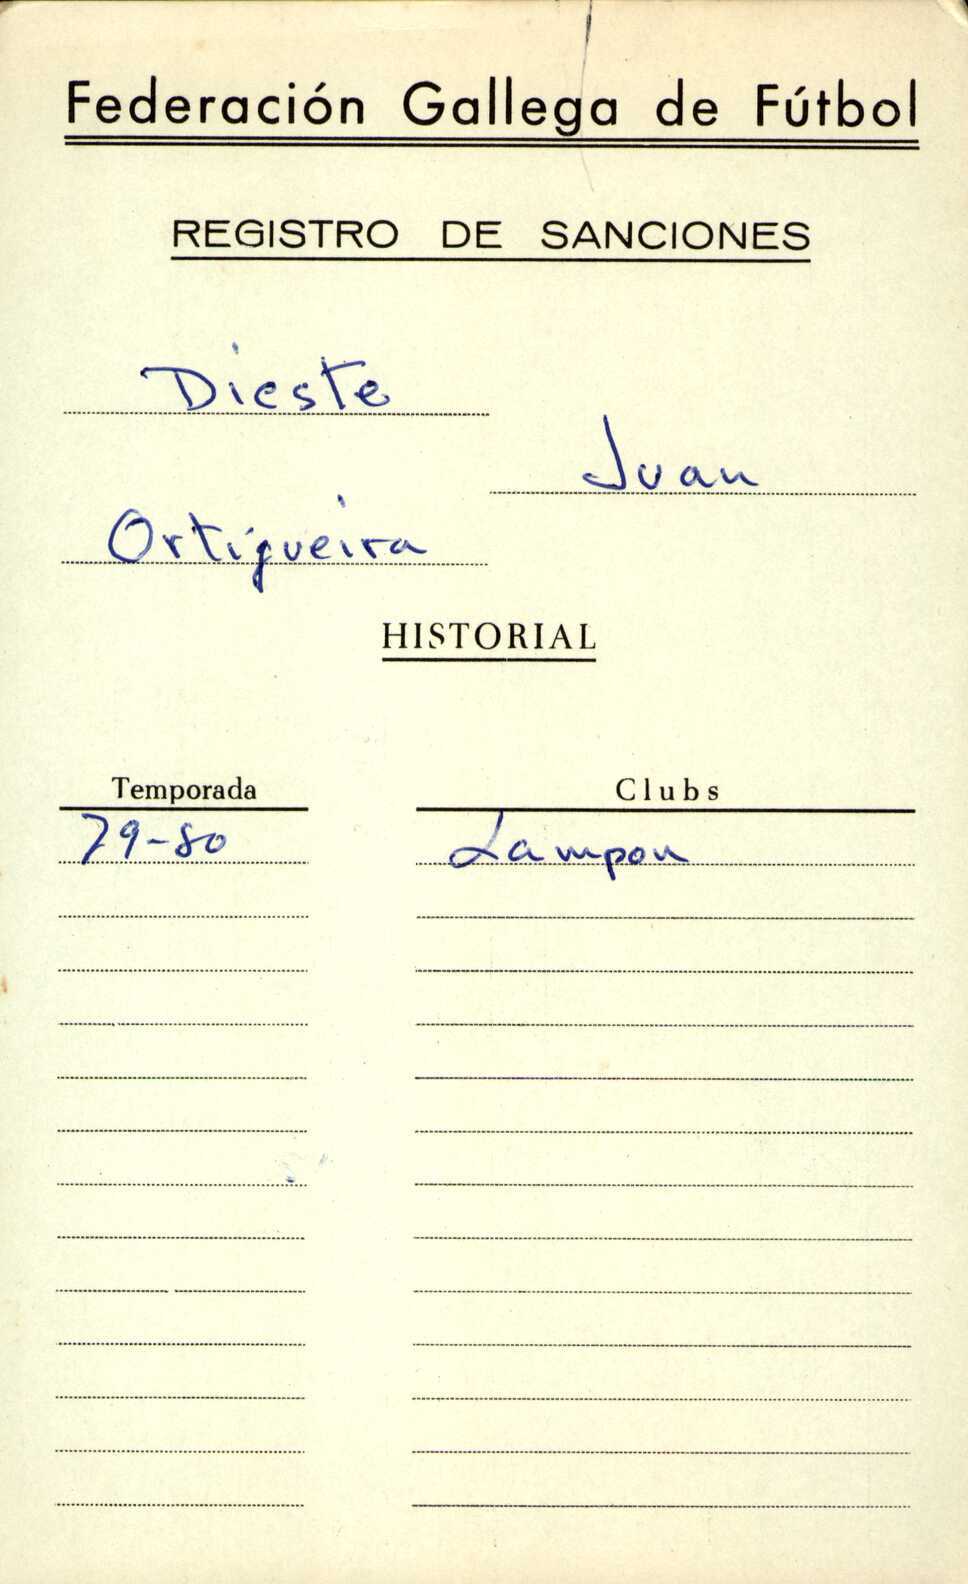 Federación Gallega de Fútbol
REGISTRO DE SANCIONES
Dieste
Juan
Ortigueira
HISTORIAL
Temporada Clubs
79-80 Lampon